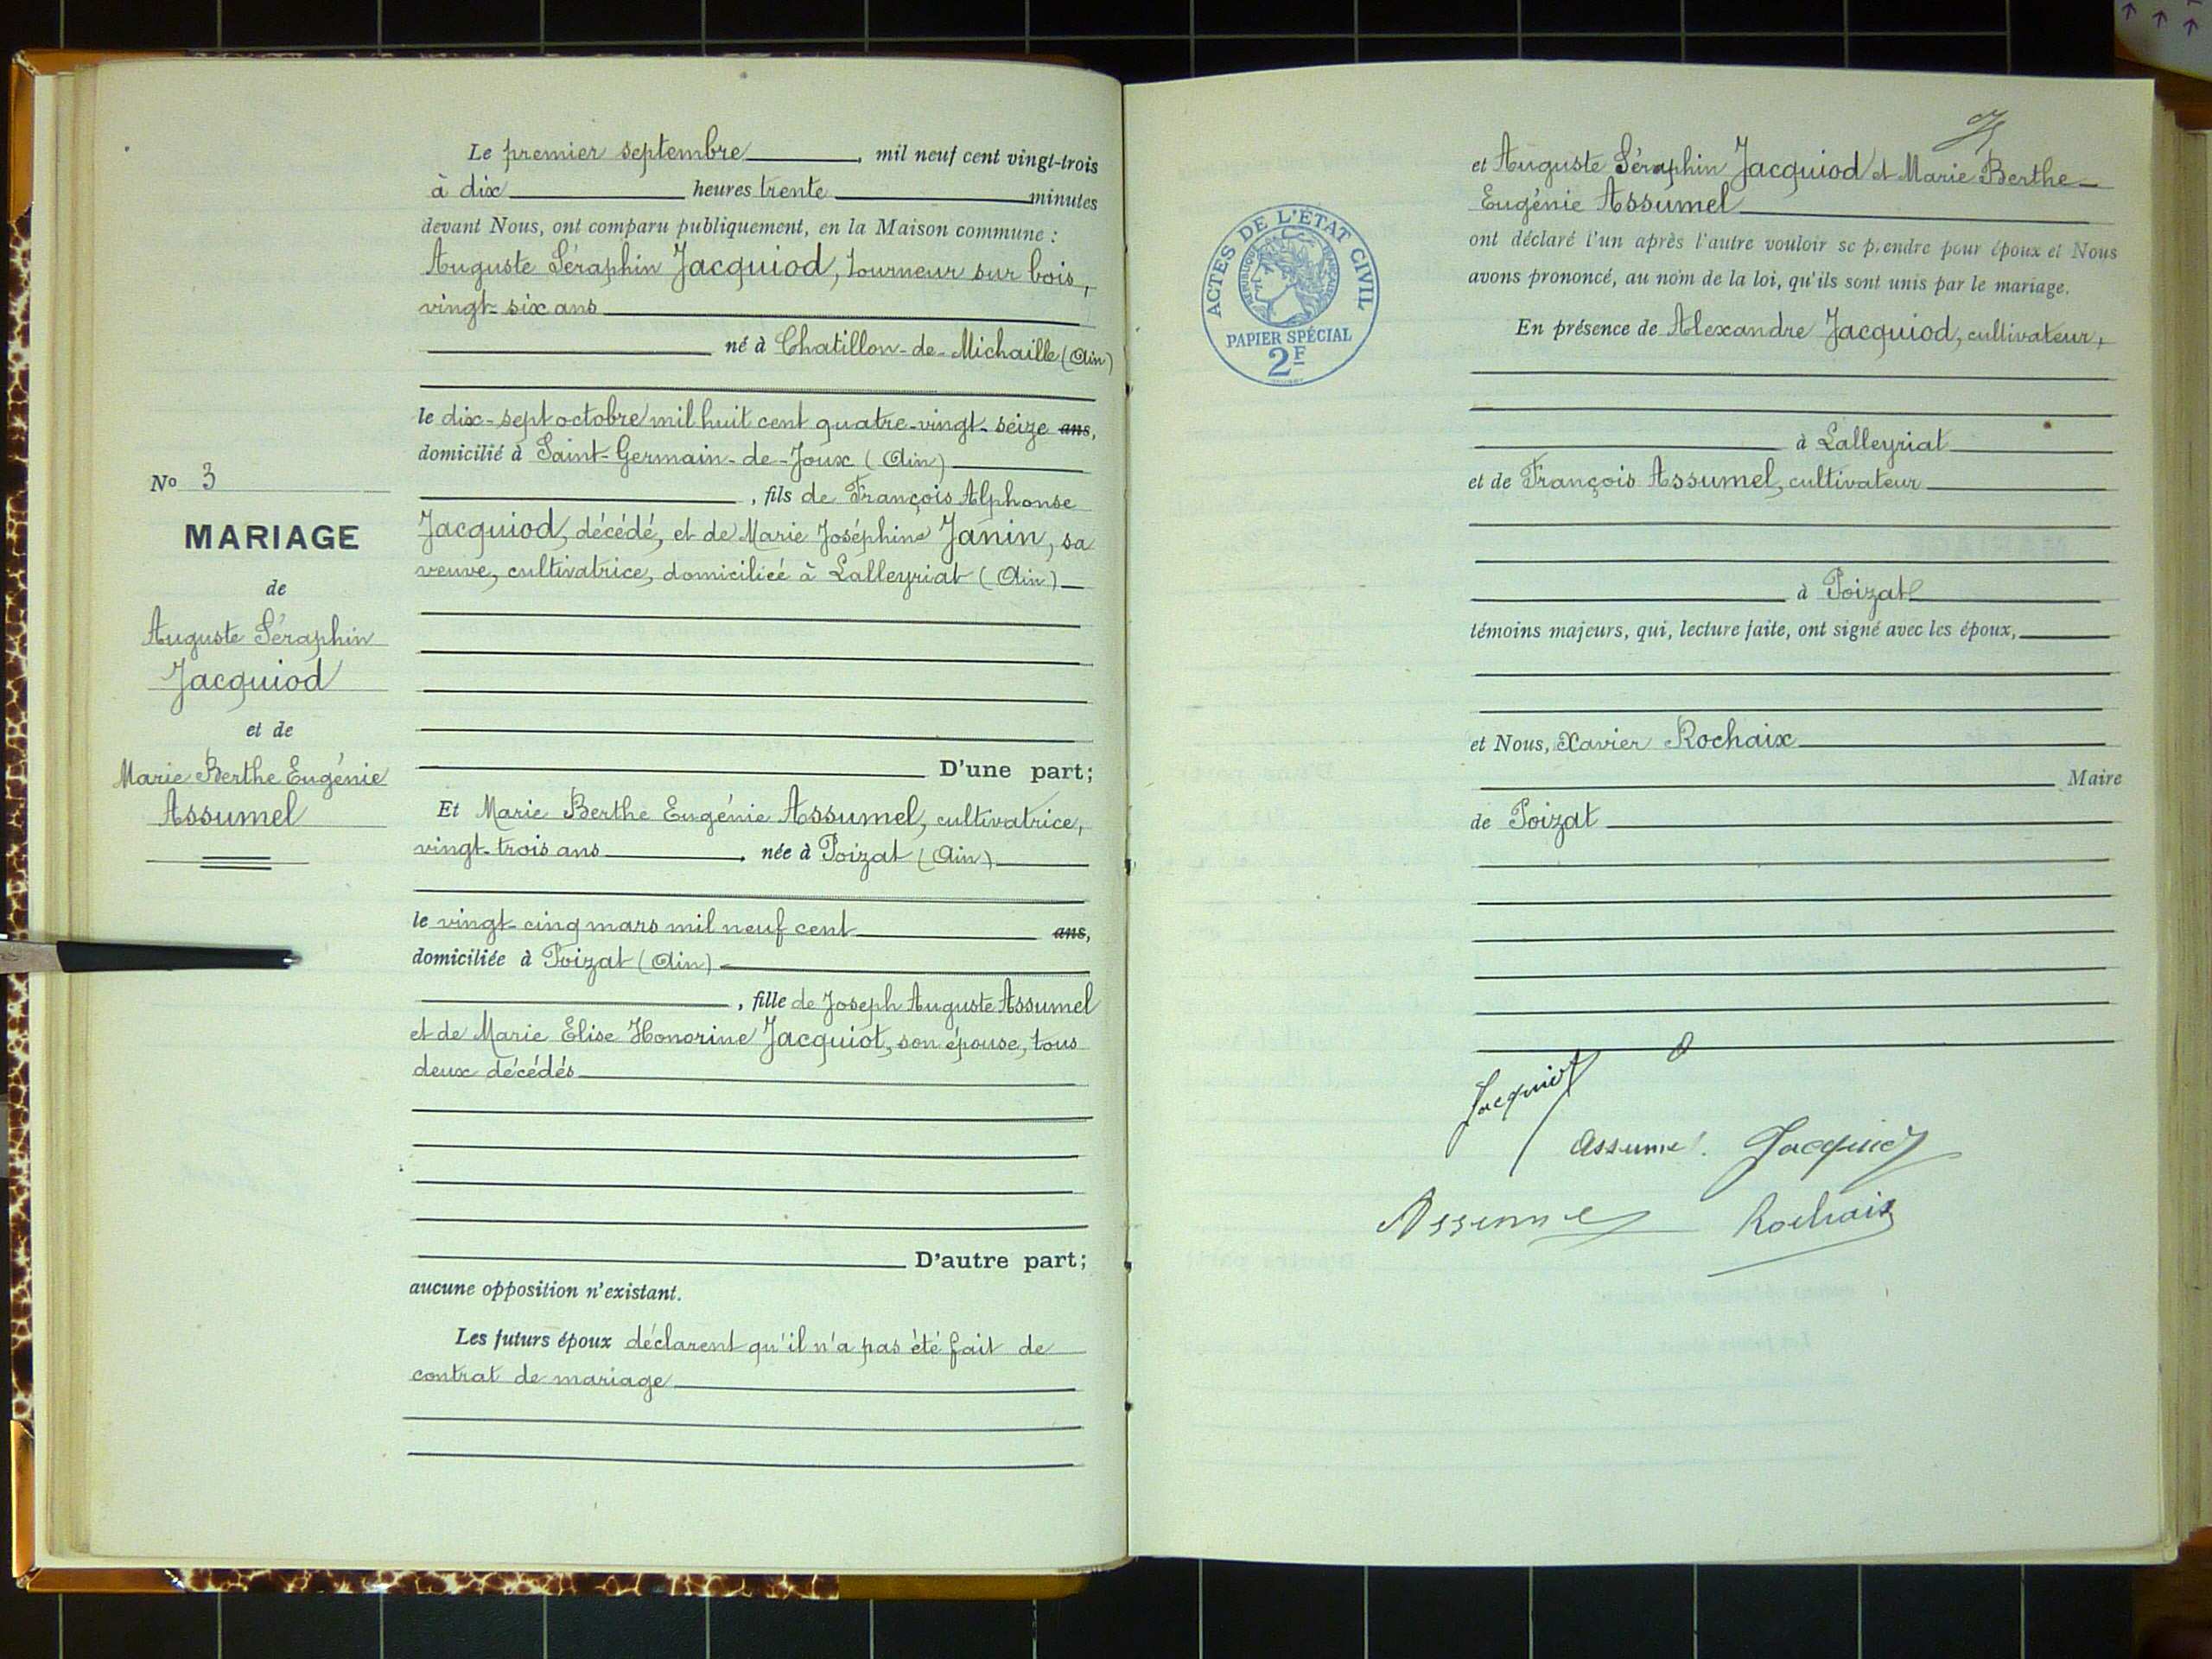 Le premier septembre, mil neuf cent vingt-trois
à dix heures trente minutes
devant Nous, ont comparu publiquement, en la Maison commune :
Auguste Séraphin Jacquiod, tourneur sur bois,
vingt-six ans
né à Chatillon-de-Michaille (Ain)
le dix-sept octobre mil huit cent quatre-vingt-seize ans,
domicilié à Saint-Germain-de-Joux (Ain)
, fils de François Alphonse
Jacquiod, décédé, et de Marie Joséphine Janin, sa
veuve, cultivatrice, domiciliée à Lalleyriat (Ain)
D'une part;
Et Marie Berthe Eugénie Assumel, cultivatrice,
vingt-trois ans, née à Poizat (Ain)
le vingt-cinq mars mil neuf cent ans,
domiciliée à Poizat (Ain)
, fille de Joseph Auguste Assumel
et de Marie Elise Honorine Jacquiot, son épouse, tous
deux décédés
D'autre part;
aucune opposition n'existant.
Les futurs époux déclarent qu'il n'a pas été fait de
contrat de mariage
No 3
MARIAGE
de
Auguste Séraphin
Jacquiod
et de
Marie Berthe Eugénie
Assumel
et Auguste Séraphin Jacquiod et Marie Berthe
Eugénie Assumel
ont déclaré l'un après l'autre vouloir se prendre pour époux et Nous
avons prononcé, au nom de la loi, qu'ils sont unis par le mariage.
En présence de Alexandre Jacquiod, cultivateur,
à Lalleyriat
et de François Assumel, cultivateur
à Poizat
témoins majeurs, qui, lecture faite, ont signé avec les époux,
et Nous, Xavier Rochaix
Maire
de Poizat
Jacquiod
Assumel. Jacquiod
Assumel Rochaix
ACTES DE L'ÉTAT CIVIL
RÉPUBLIQUE FRANÇAISE
PAPIER SPÉCIAL
2F